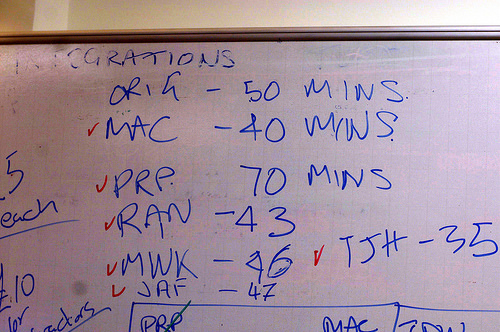 INTEGRATIONS
ORIG - 50 MINS.
✓ MAC - 40 MINS.
✓ PRP. 70 MINS
✓ RAN - 43
✓ MWK - 46
✓ TJH - 35
✓ JAF - 47
.5
each
£.10
for
PRP
MAC